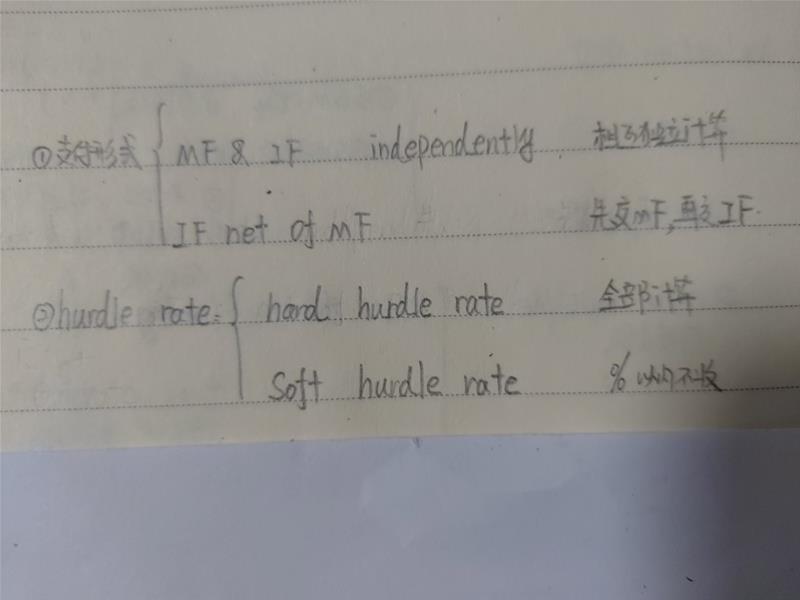 ①支付形式 MF & IF independently 相互独立计算
IF net of MF 先交MF,再交IF.
②hurdle rate: hard hurdle rate 全部计算
Soft hurdle rate %以内不收